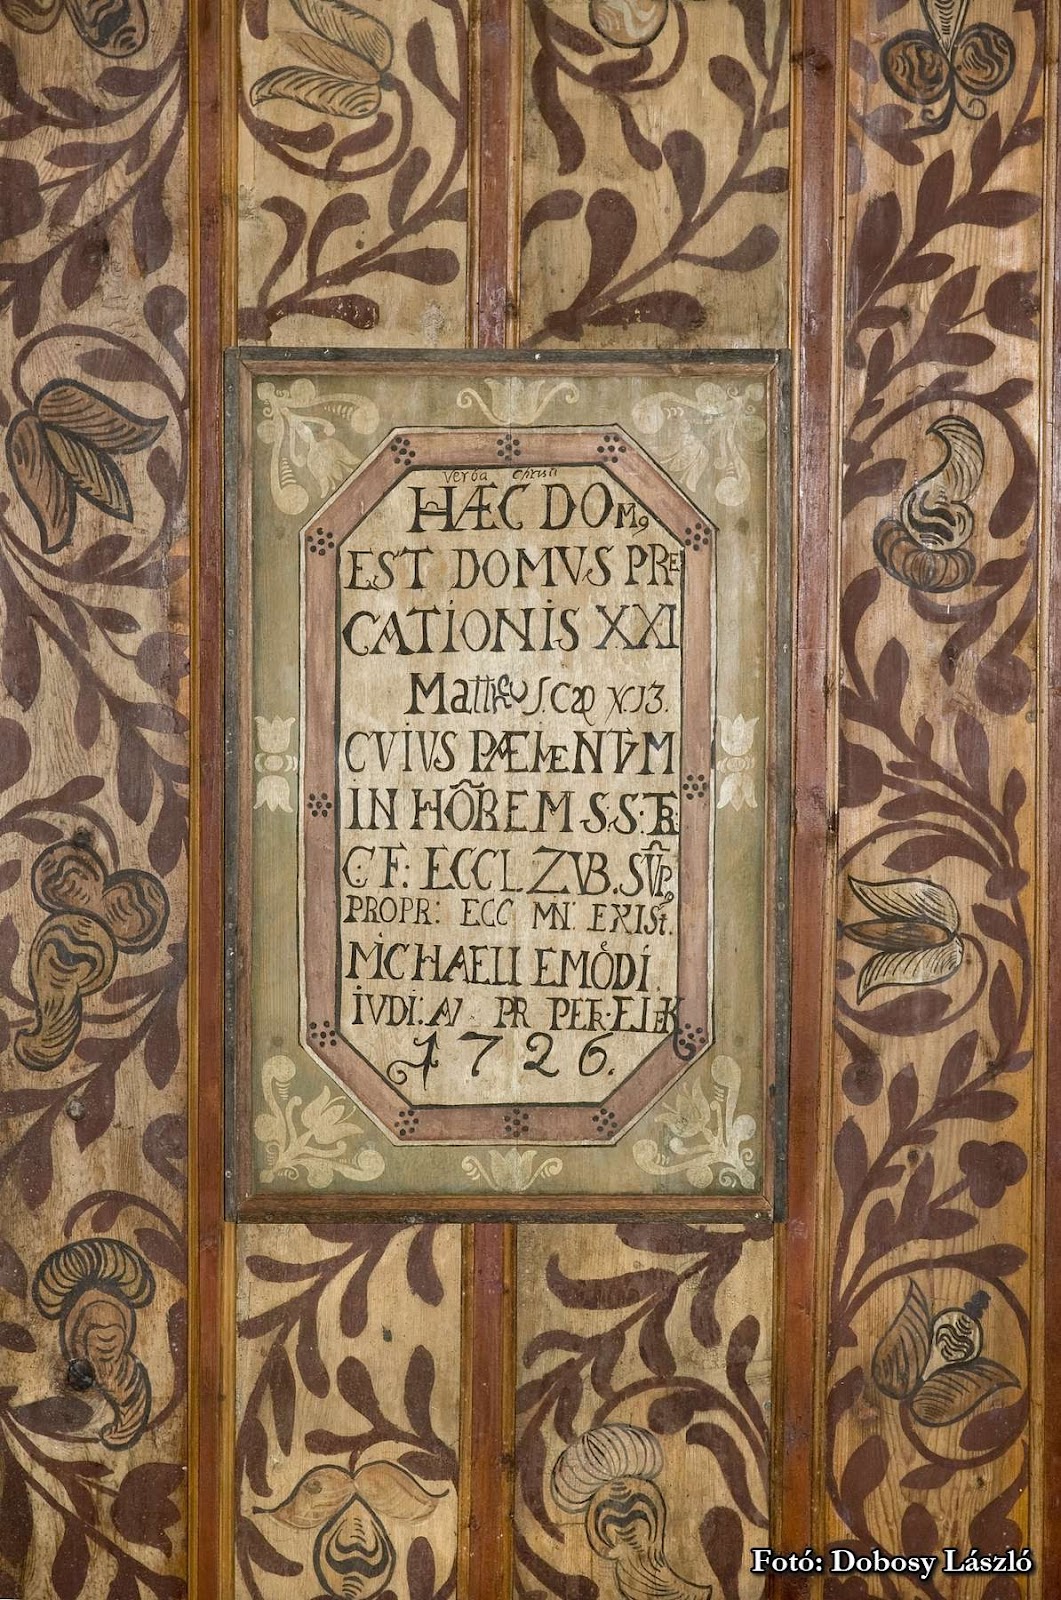 Verba Christi
HÆC DOM9
EST DOMVS PRE
CATIONIS XXI
Mattheus. Cap XI3.
CVIVS PÆMENTVM
IN HÔREM S.S: TR:
C F: ECCL ZVB. SVP9
PROPR: ECC MN: EXISt.
MICHAELI EMÖDI.
IVDI: AV PR PER. ELEK
1726.
Fotó: Dobosy László